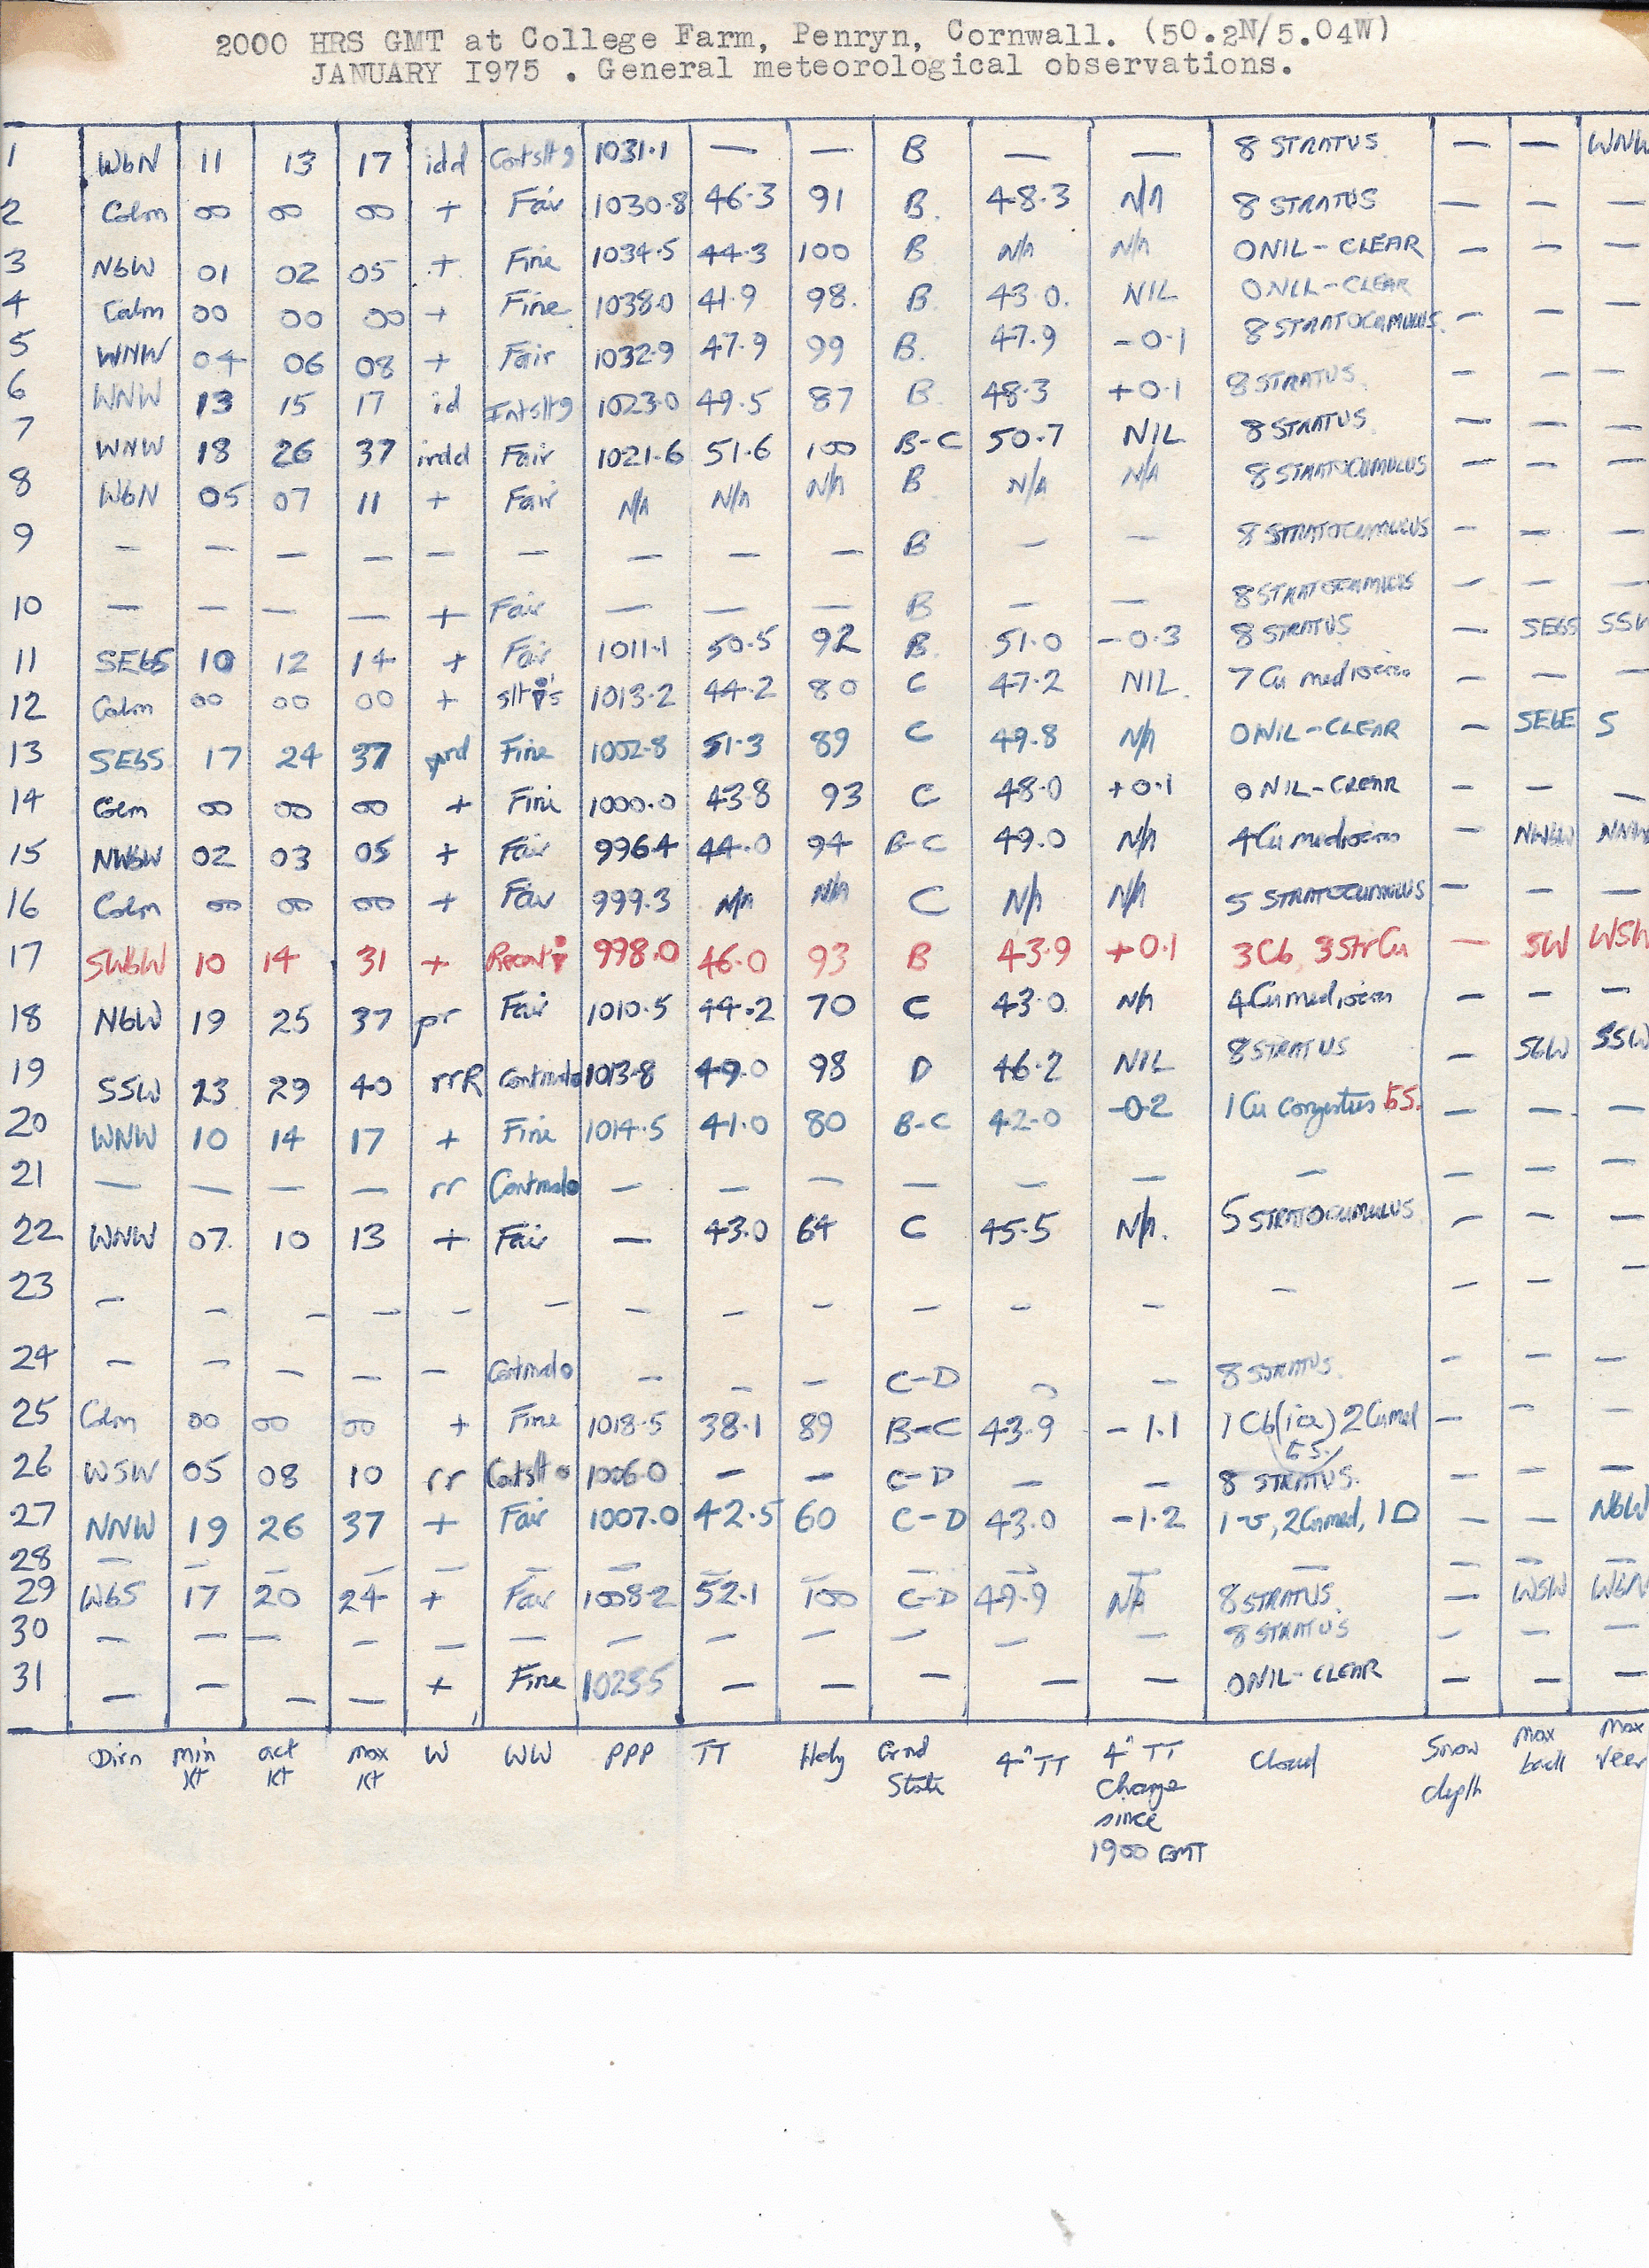 2000 HRS GMT at College Farm, Penryn, Cornwall. (50.2N/5.04W)
JANUARY I975 . General meteorological observations.
1 WbN 11 13 17 idd 1031.1 — — B — — 8 STRATUS — — WNW
2 Calm 00 00 00 + Fair 1030.8 46.3 91 B. 48.3 N/A 8 STRATUS — — —
3 NbW 01 02 05 + Fine 1034.5 44.3 100 B N/A N/A 0 NIL - CLEAR — — —
4 Calm 00 00 00 + Fine 1038.0 41.9 98. B 43.0. NIL 0 NIL - CLEAR
5 WNW 04 06 08 + Fair 1032.9 47.9 99 B. 47.9 -0.1 8 STRATOCUMULUS. — — —
6 WNW 13 15 17 id 1023.0 49.5 87 B 48.3 +0.1 8 STRATUS. — — —
7 WNW 18 26 37 irdd Fair 1021.6 51.6 100 B-C 50.7 NIL 8 STRATUS — — —
8 WbN 05 07 11 + Fair N/A N/A N/A B N/A N/A 8 STRATOCUMULUS — — —
9 — — — — — — — — — B — — 8 STRATOCUMULUS — — —
10 — — — — + Fair — — — B — — 8 STRATOCUMULUS — — —
11 SEbS 10 12 14 + Fair 1011.1 50.5 92 B. 51.0 -0.3 8 STRATUS — SEbS
12 Calm 00 00 00 + slt 's 1013.2 44.2 80 C 47.2 NIL. 7 Cu mediocris — — —
13 SEbS 17 24 37 Fine 1002.8 51.3 89 C 49.8 N/A 0 NIL - CLEAR — SEbE S
14 Calm 00 00 00 + Fine 1000.0 43.8 93 C 48.0 +0.1 0 NIL - CLEAR — — —
15 NWbW 02 03 05 + Fair 996.4 44.0 94 B-C 49.0 N/A 4 Cu mediocris — NWbW NNW
16 Calm 00 00 00 + Fair 999.3 N/A N/A C N/A N/A 5 STRATOCUMULUS — — —
17 SWbW 10 14 31 + Recent 998.0 46.0 93 B 43.9 +0.1 3 Cb, 3 StrCu — SW WSW
18 NbW 19 25 37 pr Fair 1010.5 44.2 70 C 43.0 N/A 4 Cu mediocris — — —
19 SSW 23 29 40 rrR Contmod 1013.8 49.0 98 D 46.2 NIL 8 STRATUS — SbW SSW
20 WNW 10 14 17 + Fine 1014.5 41.0 80 B-C 42.0 -0.2 1 Cu congestus — — —
21 — — — — rr Contmod — — — — — — — — — —
22 WNW 07. 10 13 + Fair — 43.0 64 C 45.5 N/A. 5 STRATOCUMULUS — — —
23 — — — — — — — — — — — — — — — —
24 — — — — — Contmod — — — C-D — — 8 STRATUS. — — —
25 Calm 00 00 00 + Fine 1018.5 38.1 89 B-C 43.9 -1.1 1 Cb (ice) 2 Cumed — — —
26 WSW 05 08 10 rr Contslt 1006.0 — — C-D — — 8 STRATUS. — — —
27 NNW 19 26 37 + Fair 1007.0 42.5 60 C-D 43.0 -1.2 2 Cumed, — — NbW
28 — — — — — — — — — — — — — — —
29 WbS 17 20 24 + Fair 1008.2 52.1 100 C-D 49.9 N/A 8 STRATUS. — WSW WbN
30 — — — — — — — — — — — — 8 STRATUS — — —
31 — — — — + Fine — — — — — 0 NIL - CLEAR — — —
Dirn min Kt act Kt max Kt W WW PPP TT Hdy Grnd State 4" TT 4" TT Change since 1900 GMT Cloud Snow depth Max back Max Veer